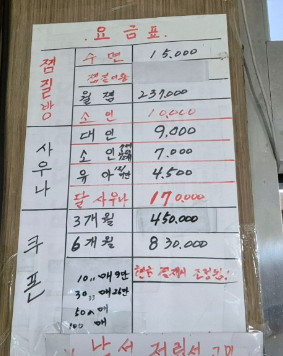 . 요 금 표 .
찜질방
수 면 15.000
월 찜 237.000
소 인 10,000
사우나
대 인 9,000
소 인 7.000
유 아 4.500
달 사우나 170.000
쿠폰
3개월 450.000
6개월 830.000
10 매 9만
30 매 26만
50 매
100 매
남성 전립선